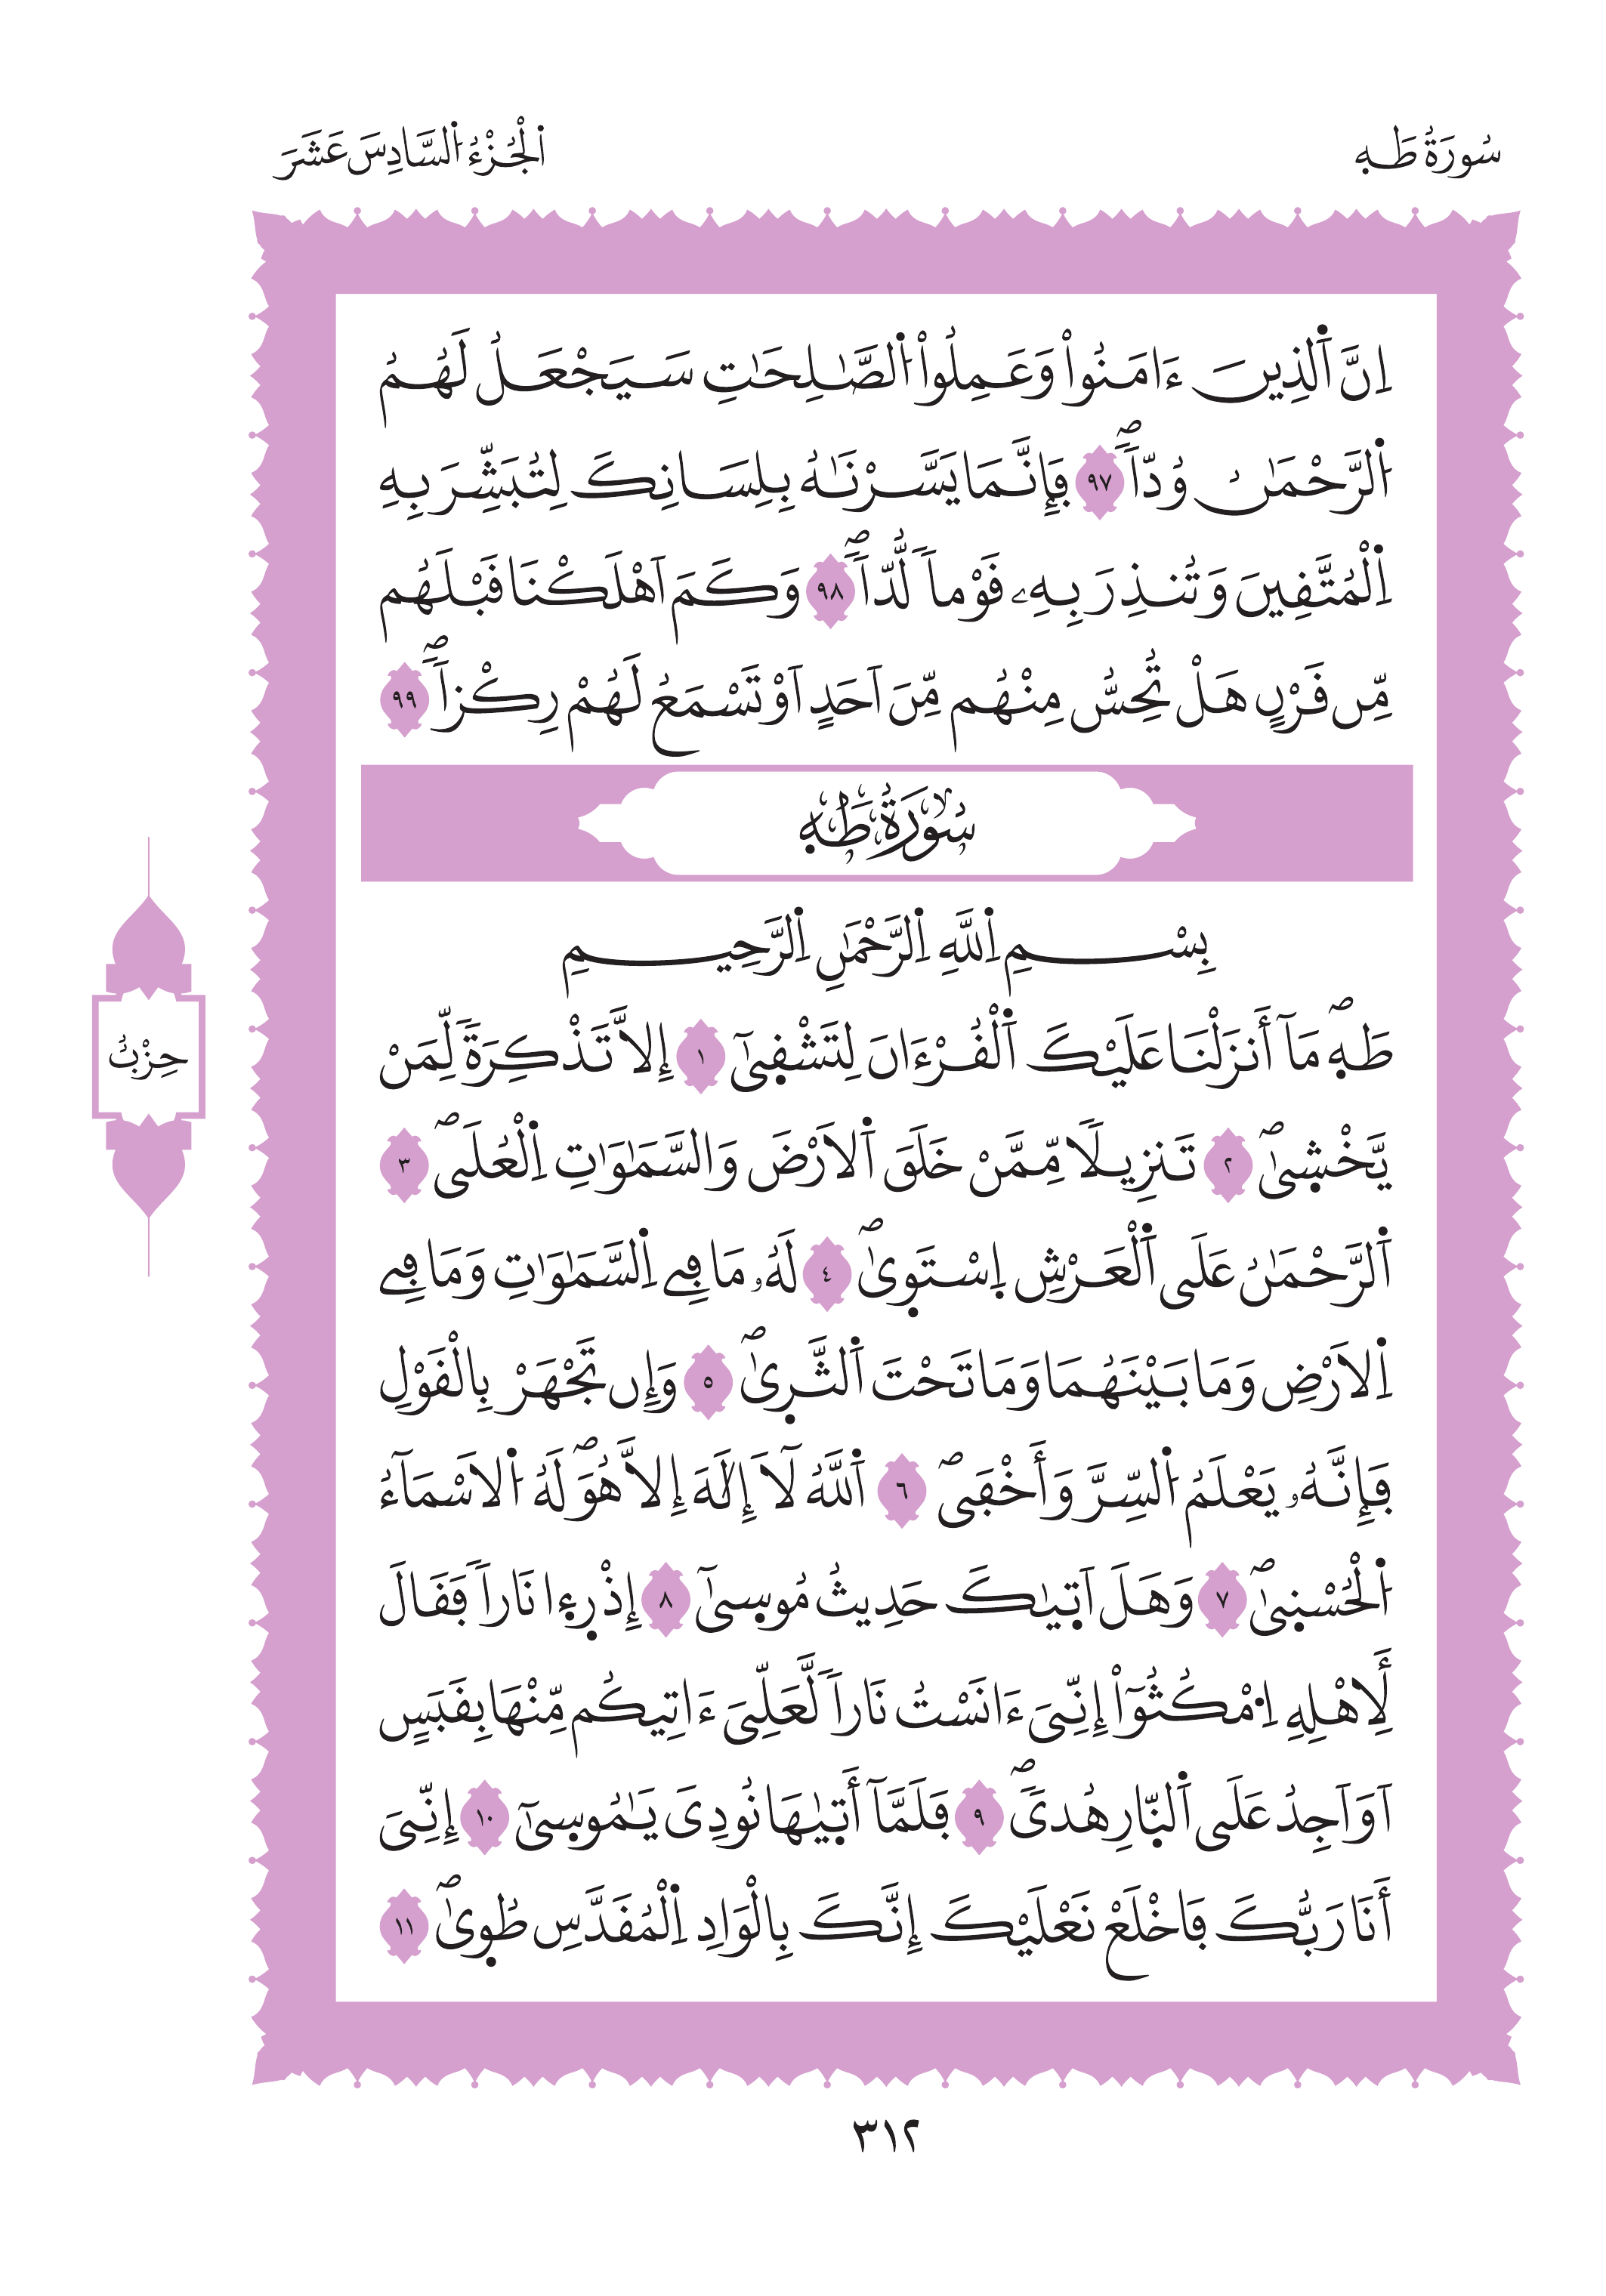 سُورَةُ طَهِ
اُ۬لْجُزْءُ اُ۬لسَّادِسَ عَشَرَ
اِنَّ اَ۬لذِينَ ءَامَنُواْ وَعَمِلُواْ اُ۬لصَّٰلِحَٰتِ سَيَجْعَلُ لَهُمُ
اُ۬لرَّحْمَٰنُ وُدّاٗۖ ٩٧ فَإِنَّمَا يَسَّرْنَٰهُ بِلِسَانِكَ لِتُبَشِّرَ بِهِ
اِ۬لْمُتَّقِينَ وَتُنذِرَ بِهِۦ قَوْماٗ لُّدّاٗۖ ٩٨ وَكَمَ اَهْلَكْنَا قَبْلَهُم
مِّن قَرْنٍ هَلْ تُحِسُّ مِنْهُم مِّنَ اَحَدٍ اَوْ تَسْمَعُ لَهُمْ رِكْزاٗۖ ٩٩
سُورَةُ طَهِ
بِسْمِ اِ۬للَّهِ اِ۬لرَّحْمَٰنِ اِ۬لرَّحِيمِ
طَهِۖ مَآ أَنزَلْنَا عَلَيْكَ اَ۬لْقُرْءَانَ لِتَشْقِىٰٓ ١ إِلاَّ تَذْكِرَةٗ لِّمَنْ
يَّخْشِىٰۖ ٢ تَنزِيلاٗ مِّمَّنْ خَلَقَ اَ۬لَارْضَ وَالسَّمَٰوَٰتِ اِ۬لْعُلَىۖ ٣
اَ۬لرَّحْمَٰنُ عَلَى اَ۬لْعَرْشِ اِ۪سْتَوِىٰۖ ٤ لَهُۥ مَا فِے اِ۬لسَّمَٰوَٰتِ وَمَا فِے
اِ۬لَارْضِ وَمَا بَيْنَهُمَا وَمَا تَحْتَ اَ۬لثَّرِىٰۖ ٥ وَإِن تَجْهَرْ بِالْقَوْلِ
فَإِنَّهُۥ يَعْلَمُ اُ۬لسِّرَّ وَأَخْفَىۖ ٦ اَ۬للَّهُ لَآ إِلَٰهَ إِلاَّ هُوَۖ لَهُ اُ۬لَاسْمَآءُ
اُ۬لْحُسْنِىٰۖ ٧ وَهَلَ اَتِيٰكَ حَدِيثُ مُوسِىٰٓ ٨ إِذْ رِءِا نَاراٗ فَقَالَ
لَأِهْلِهِ اِ۟مْكُثُوٓاْ إِنِّىَ ءَانَسْتُ نَاراٗ لَّعَلِّىَ ءَاتِيكُم مِّنْهَا بِقَبَسٍ
اَوَ اَجِدُ عَلَى اَ۬لنّ۪ارِ هُدىٗۖ ٩ فَلَمَّآ أَتِيٰهَا نُودِىَ يَٰمُوسِىٰٓ ١٠ إِنِّىَ
أَنَا رَبُّكَ فَاخْلَعْ نَعْلَيْكَ إِنَّكَ بِالْوَادِ اِ۬لْمُقَدَّسِ طُوِىٰۖ ١١
حِزْبُ
٣١٢